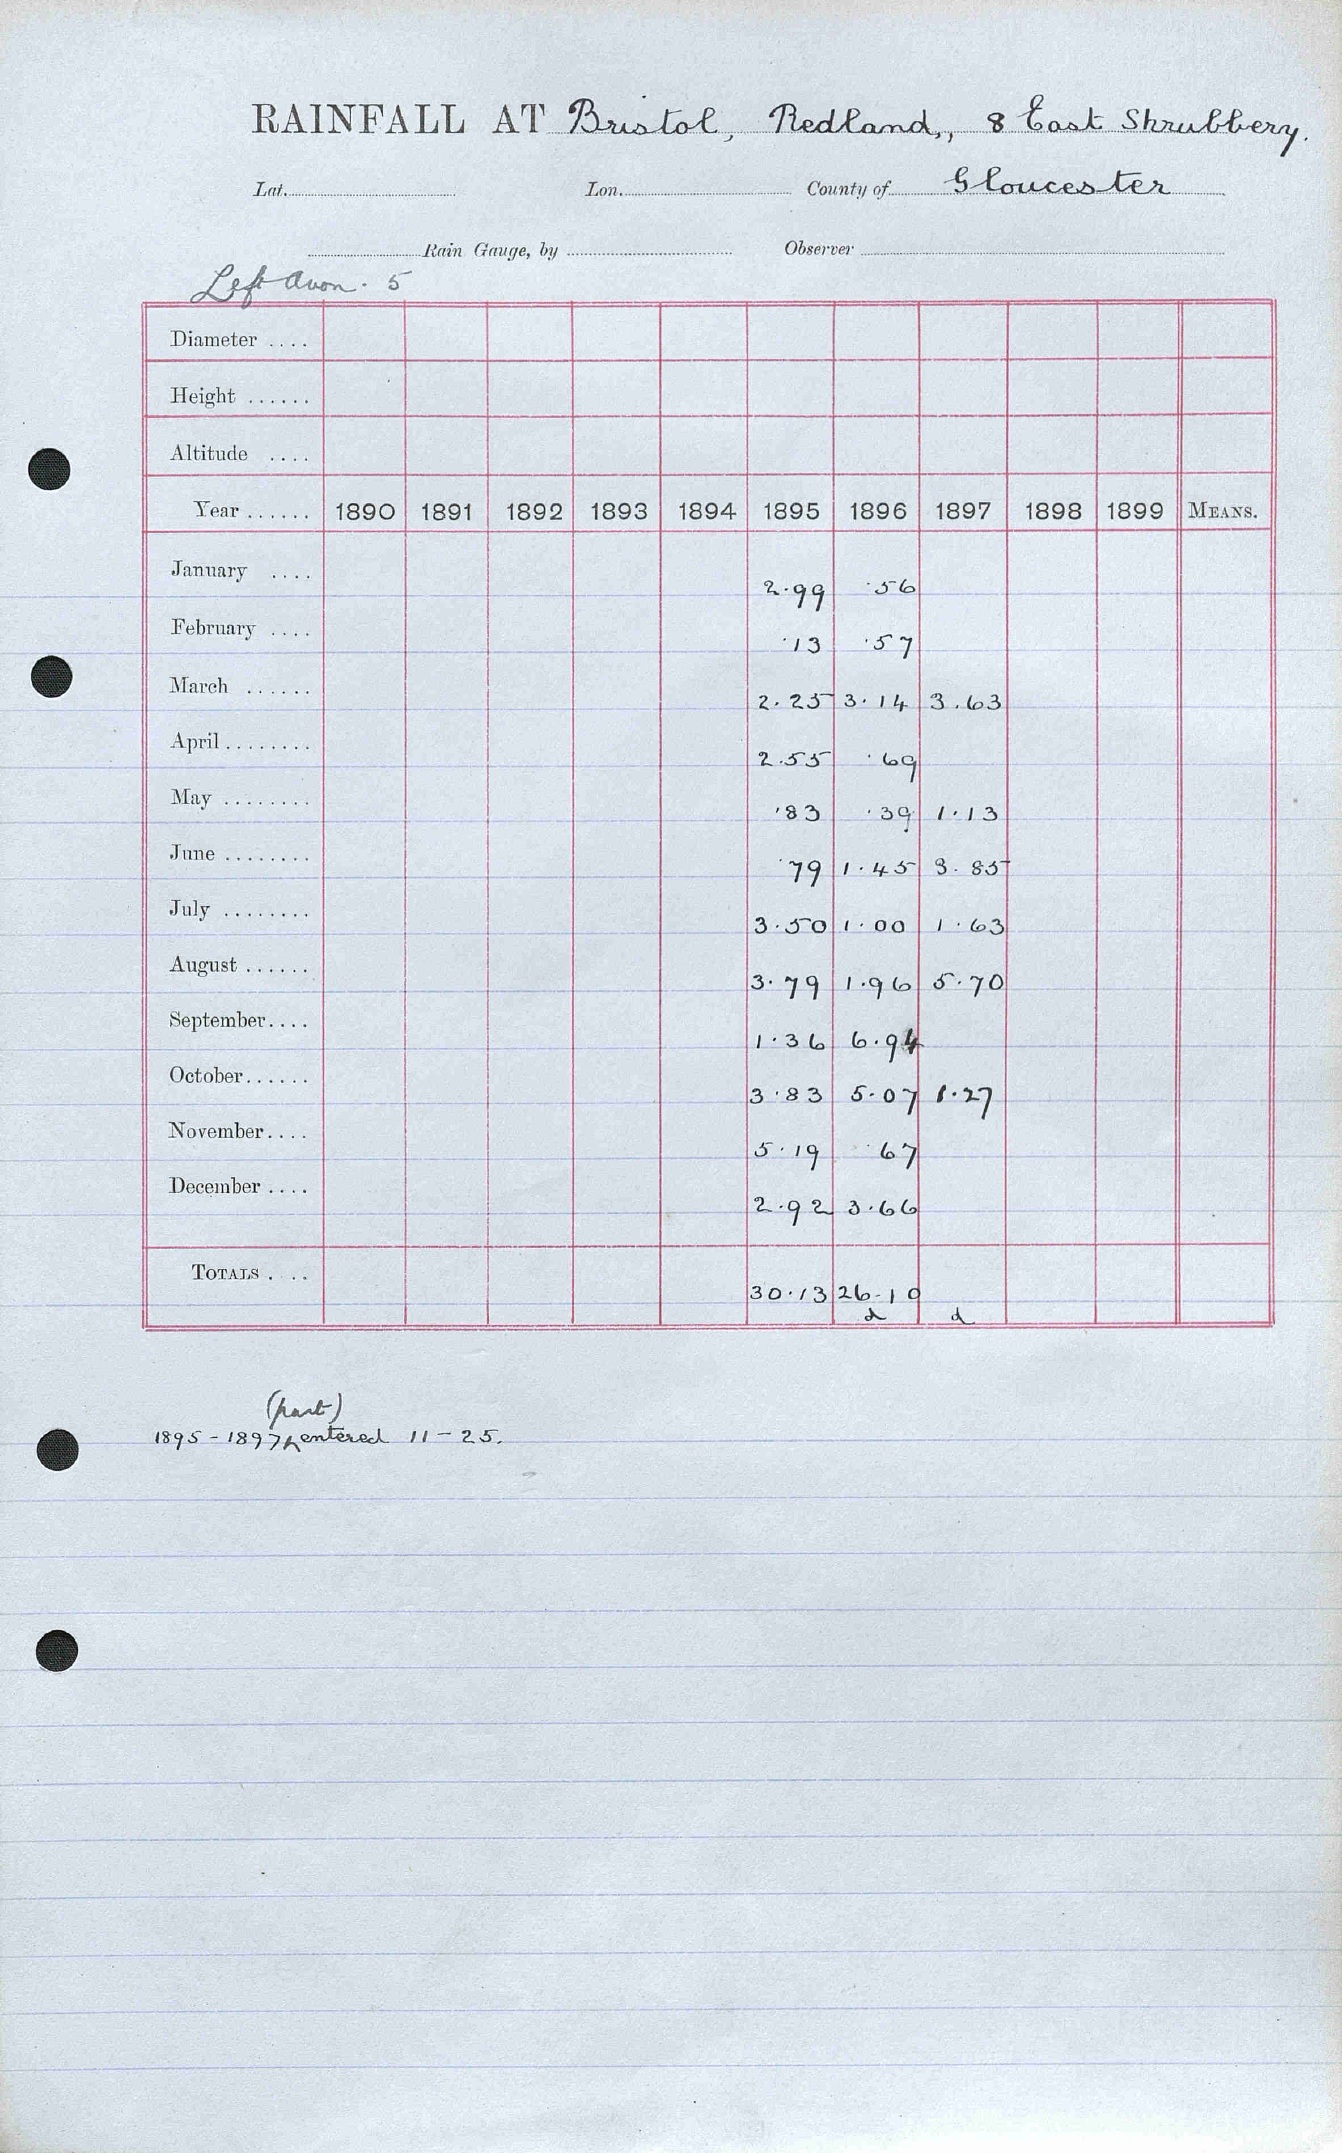 RAINFALL AT Bristol, Redland, 8 East Shrubbery.
Lat. Lon. County of Gloucester
Rain Gauge, by Observer
Left Avon. 5
Diameter ....
Height ......
Altitude ....
Year ...... 1890 1891 1892 1893 1894 1895 1896 1897 1898 1899 MEANS.
January .... 2.99 .56
February .... .13 .57
March ...... 2.25 3.14 3.63
April ........ 2.55 .69
May ........ .83 .39 1.13
June ........ .79 1.45 3.85
July ........ 3.50 1.00 1.63
August ...... 3.79 1.96 5.70
September.... 1.36 6.94
October...... 3.83 5.07 1.27
November.... 5.19 .67
December .... 2.92 3.66
TOTALS .... 30.13 26.10
d d
(part)
1895-1897 entered 11-25.